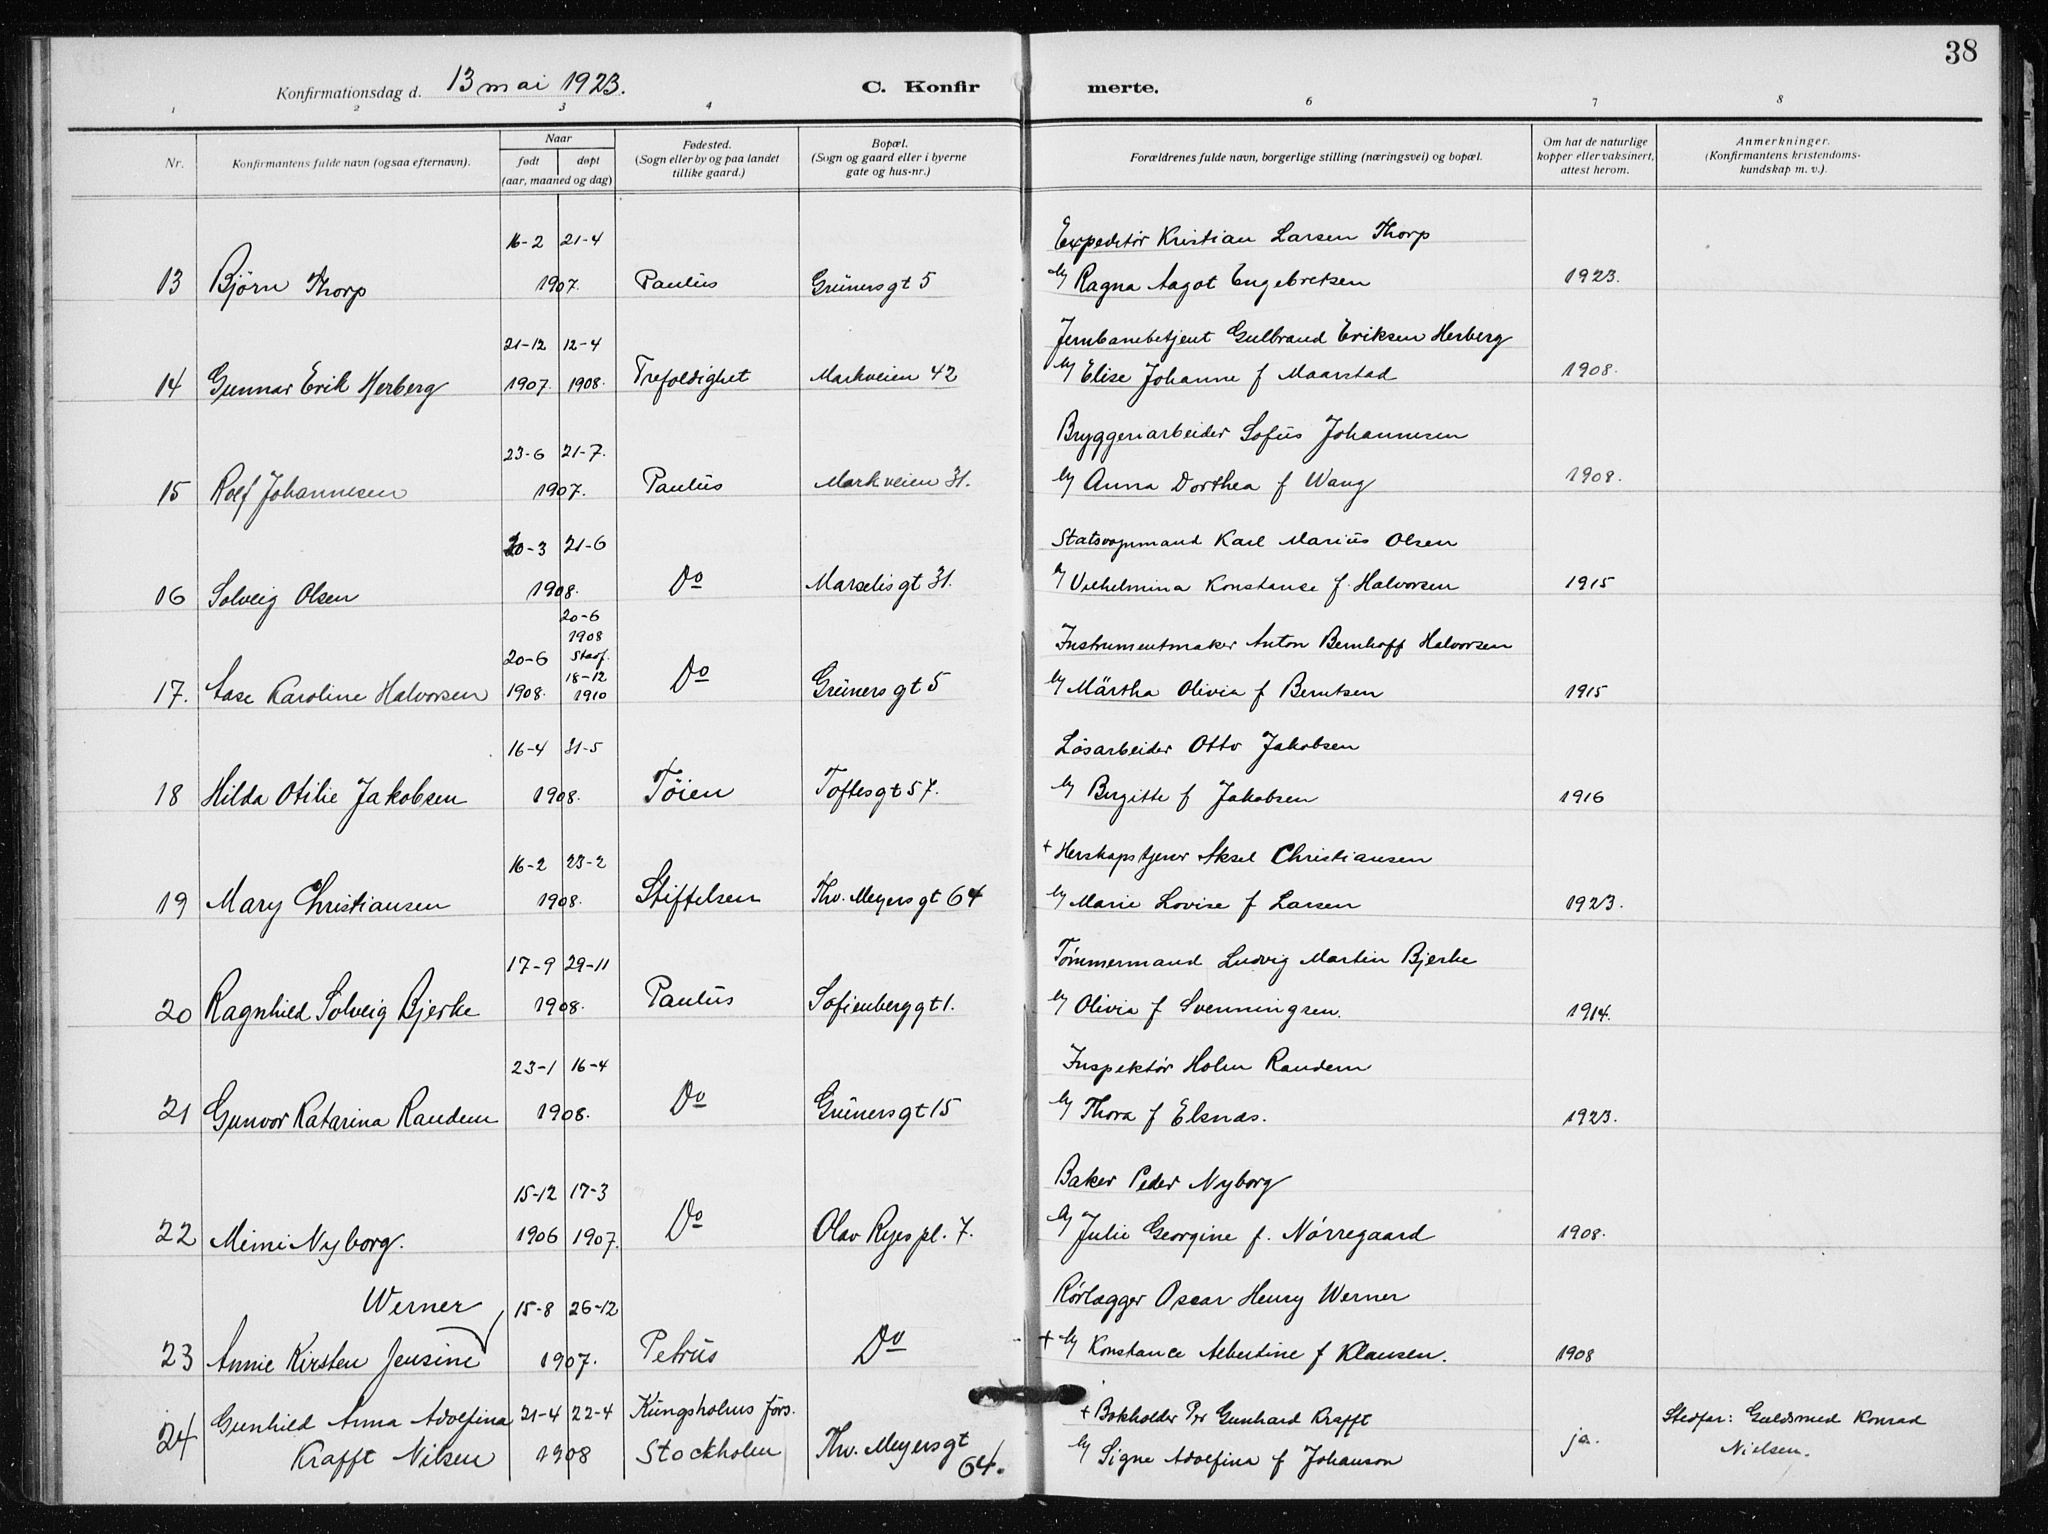 38
Konfirmationsdag d. 13 mai 1923. C. Konfir merte.
1 2 3 4 6 7 8
Nr. Konfirmantens fulde navn (ogsaa efternavn). Naar født døpt (aar, maaned og dag) Fødested. (Sogn eller by og paa landet tillike gaard.) Bopæl. (Sogn og gaard eller i byerne gate og hus-nr.) Forældrenes fulde navn, borgerlige stilling (næringsvei) og bopæl. Om hat de naturlige kopper eller vaksinert, attest herom. Anmerkninger. (Konfirmantens kristendoms-kundskap m. v.).
16-2 21-4 Expeditør Kristian Larsen Thorp
13 Bjørn Thorp 1907. Paulus Grünersgt 5 Ragna Aagot Engebretsen 1923.
21-12 12-4 Jernbanebetjent Gulbrand Eriksen Herberg
14 Gunnar Erik Herberg 1907. 1908. Trefoldighet Markveien 42 Elise Johanne f Maarstad 1908.
23-6 21-7. Bryggeriarbeider Sofus Johannesen
15 Rolf Johannesen 1907. Paulus Markveien 31. Anna Dorthea f Wang 1908.
20-3 21-6 Karl Marius Olsen
16 Solveig Olsen 1908. Do Marselisgt 31. Vilhelmina Konstanse f. Halvorsen 1915
20-6
1908
20-6 Instrumentmaker Anton Bernhoff Halvorsen
18-12
17. Aase Karoline Halvorsen 1908. 1910 Do Grünersgt 5 Märtha Olivia f Berntsen 1915
16-4 31-5 Løsarbeider Otto Jakobsen
18 Hilda Otilie Jakobsen 1908. Tøien Toftesgt 57. Birgitte f Jakobsen 1916
16-2 23-2 + Herskapstjener Aksel Christiansen
19 Mary Christiansen 1908. Stiftelsen Thv. Meyersgt 64 Marie Lovise f Larsen 1923.
17-9 29-11 Tømmermand Ludvig Martin Bjerke
20 Ragnhild Solveig Bjerke 1908. Paulus Sofienberggt 1. Olivia f Svenningsen. 1914.
23-1 16-4 Inspektør Holm Randem
21 Gunvor Katarina Randem 1908. Do Grünersgt 15 Thora f Elsnæs. 1923.
15-12 17-3 Baker Peder Nyborg
22 Mimi Nyborg. 1906 1907. Do Olav Ryes pl. 7. Julie Georgine f. Nørregaard 1908.
Werner 15-8 26-12 Rørlægger Oscar Henry Werner
23 Annie Kirsten Jensine 1907. Petrus Do + Konstance Albertine f Klausen. 1908
24 Gunhild Anna Adolfina 21-4 22-4 Kungsholms førs. + Bokholder Per Gunhard Krafft ja. Stedfar: Guldsmed Konrad
Krafft Nilsen 1908 Stockholm Thv. Meyersgt 64. Signe Adolfina f Johanson Nielsen.